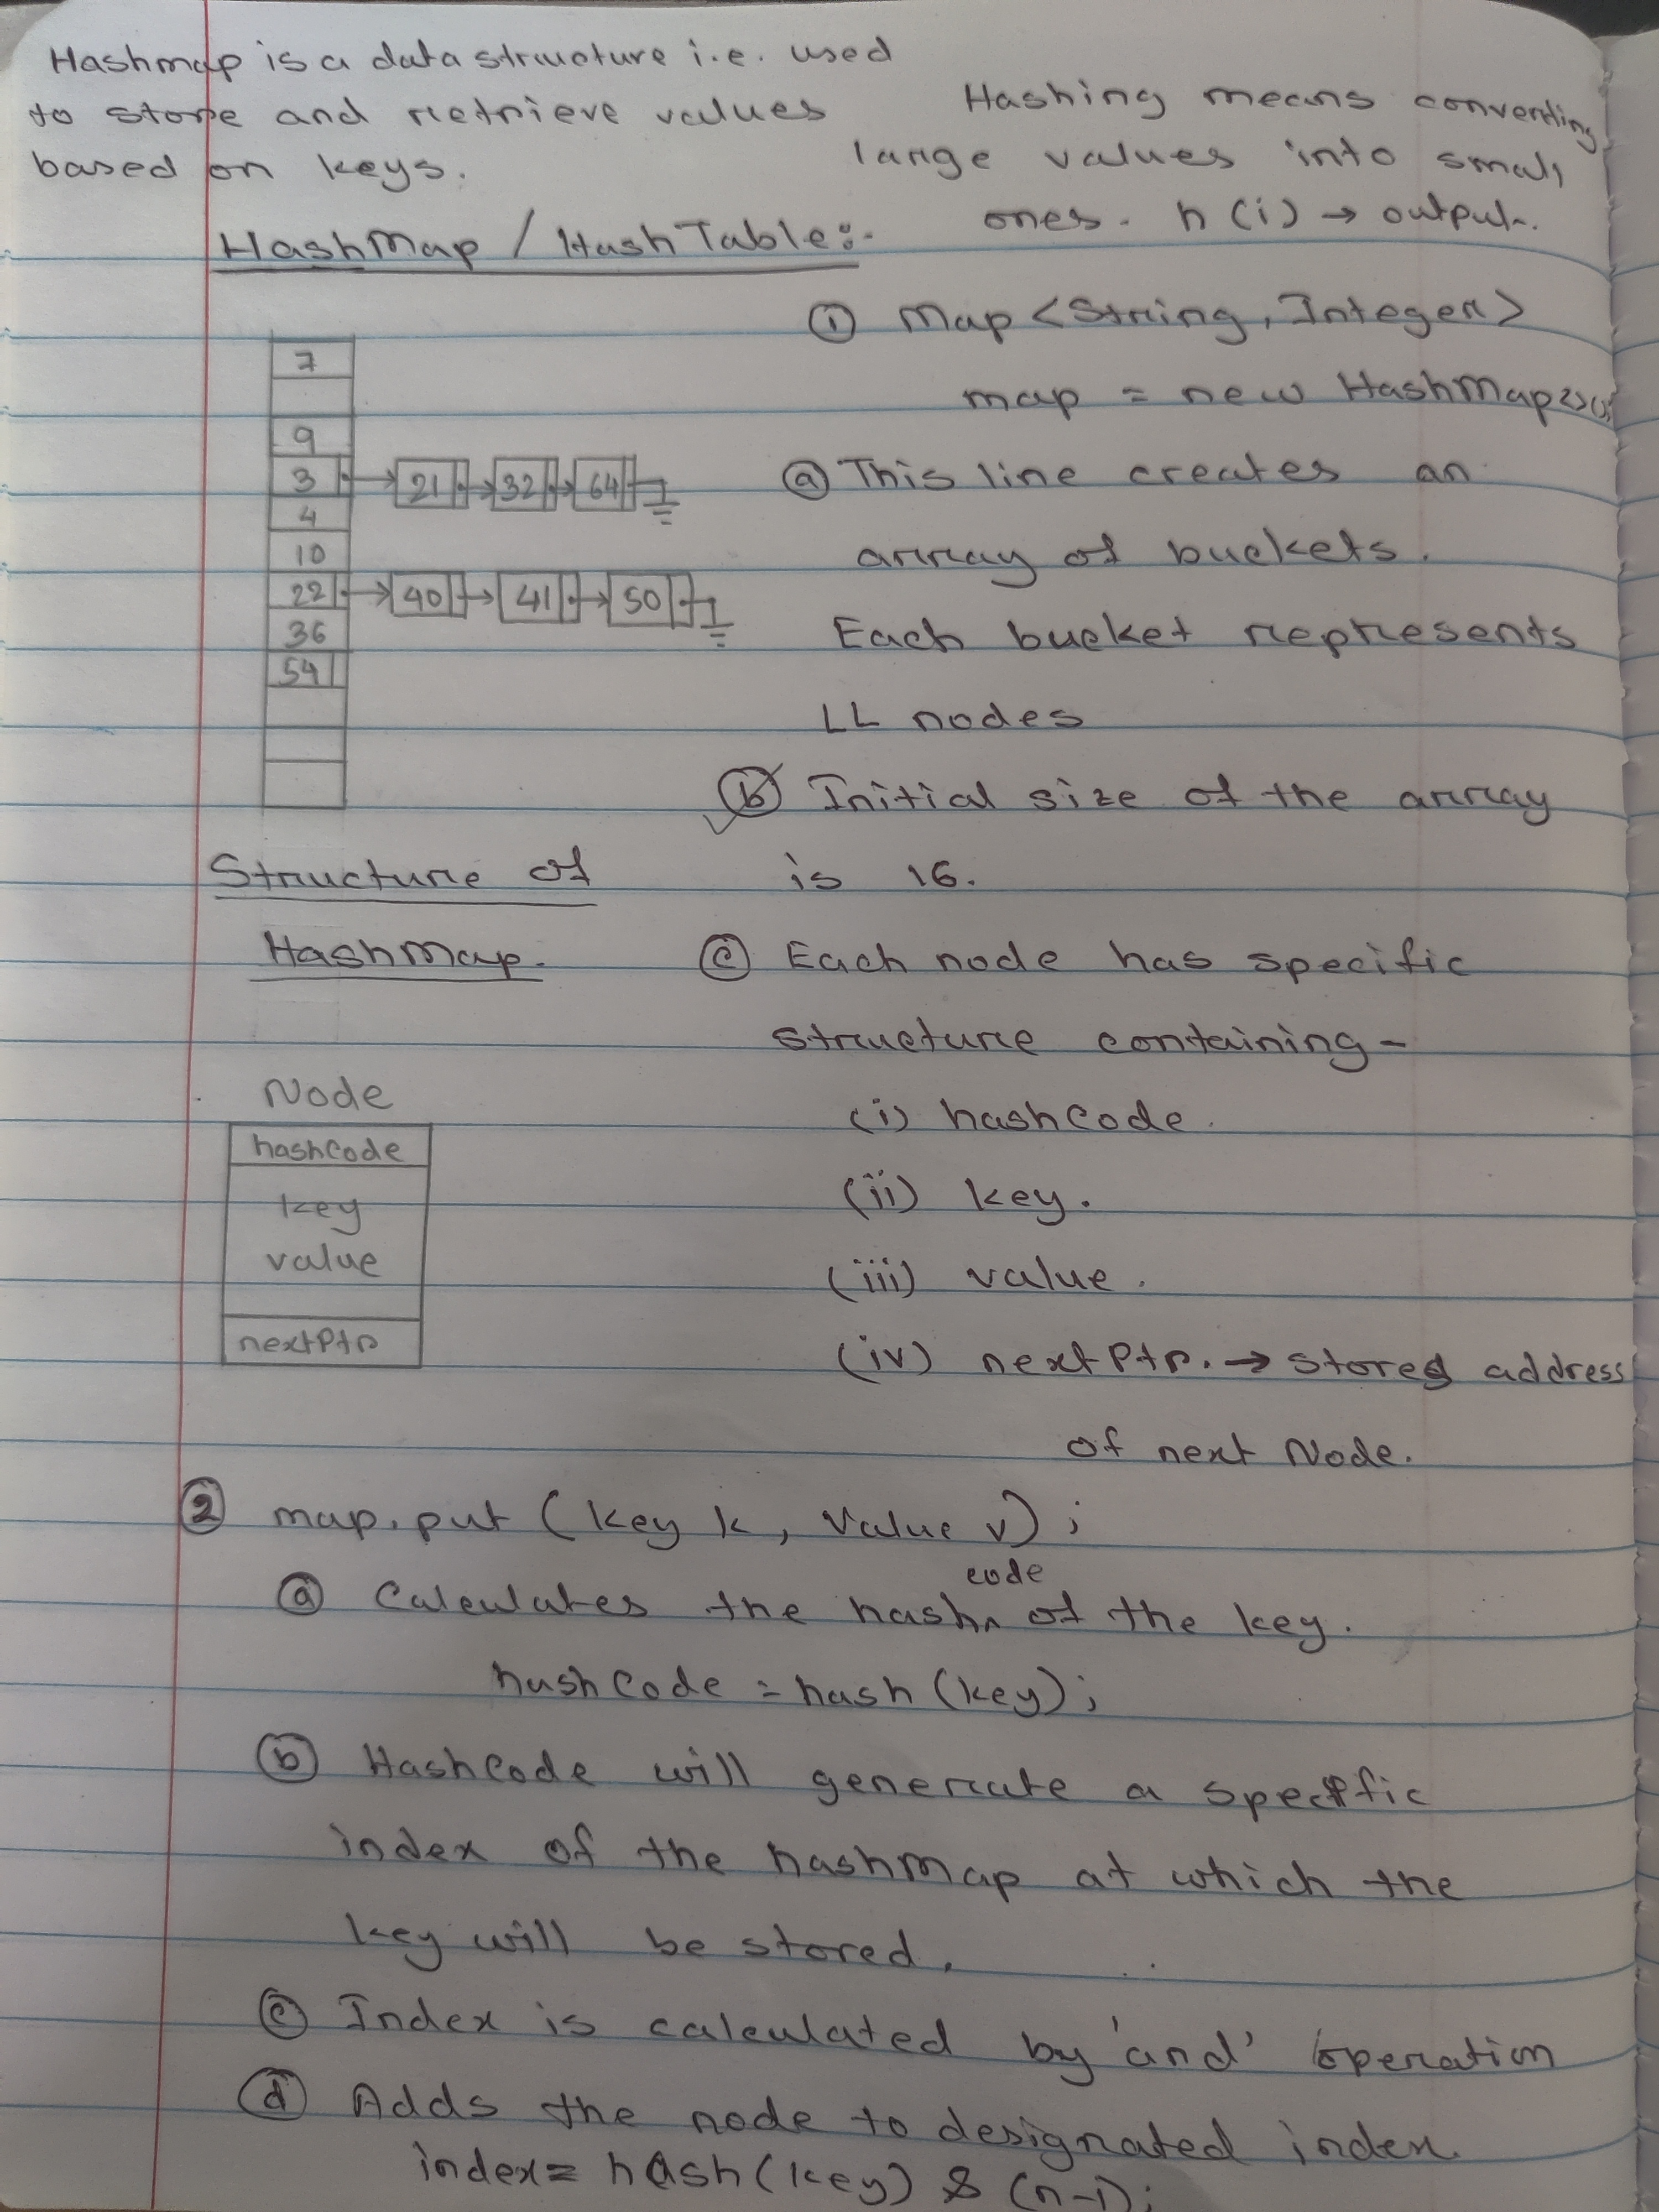 Hashmap is a data structure i.e. used
to store and retrieve values
based on keys.
Hashing means converting
large values into small
ones. h(i) → output.
HashMap / HashTable:-
7
9
3 → 21 → 32 → 64
4
10
22 → 40 → 41 → 50
36
54
Structure of
HashMap.
① Map <String, Integer>
map = new HashMap<>();
ⓐ This line creates an
array of buckets.
Each bucket represents
LL nodes
ⓑ Initial size of the array
is 16.
ⓒ Each node has specific
structure containing -
(i) hashCode.
(ii) key.
(iii) value.
(iv) nextPtr. → stores address
of next Node.
Node
hashCode
key
value
nextPtr
② map.put (key k, Value v);
ⓐ Calculates the hash code of the key.
hashCode = hash (key);
ⓑ HashCode will generate a specific
index of the hashMap at which the
key will be stored.
ⓒ Index is calculated by 'and' operation
ⓓ Adds the node to designated index.
index = hash(key) & (n-1);